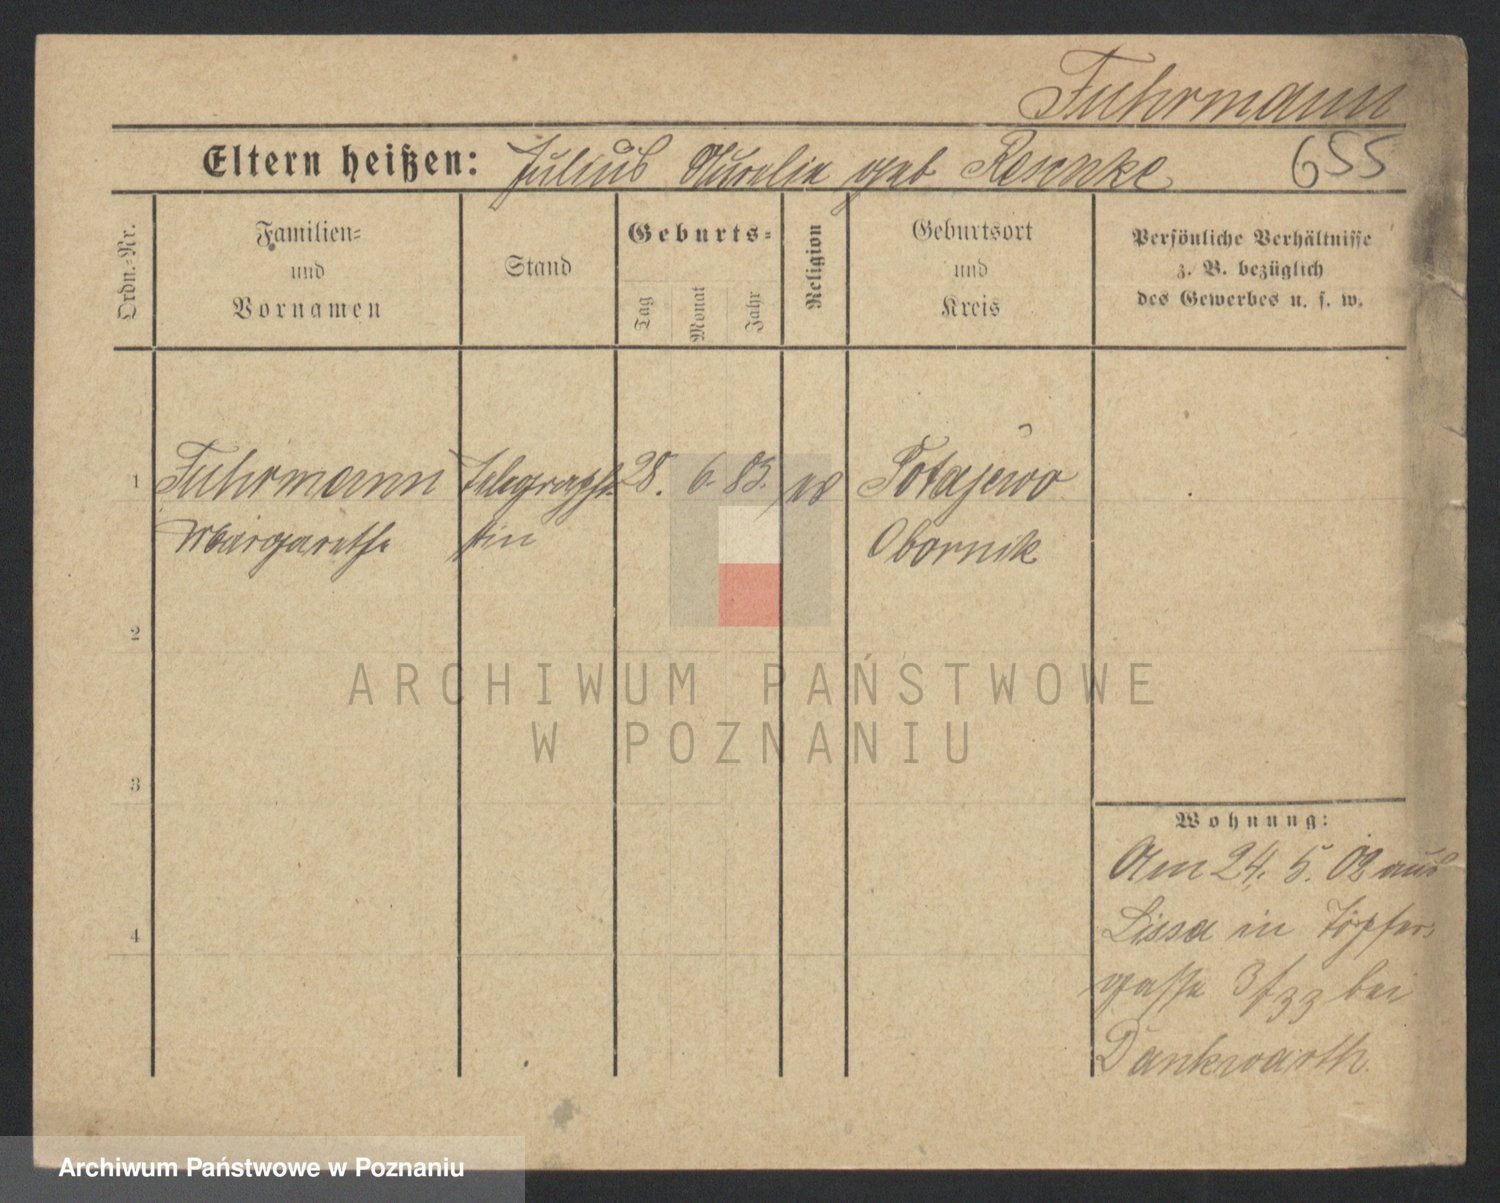 Fuhrmann
Eltern heißen: Julius Aurelia geb Reschke 655
Ordn.-Nr.
Familien-
und
Vornamen
Stand
Geburts-
Tag
Monat
Jahr
Religion
Geburtsort
und
Kreis
Persönliche Verhältnisse
z. B. bezüglich
des Gewerbes u. s. w.
1 Fuhrmann Telegraphi- 28. 6. 83. ev Potajewo
Margarethe stin Obornik
2
3
4
Wohnung:
Am 24. 5. 02 aus
Lissa in Töpfer-
gasse 3 bei
Dankwarth.
ARCHIWUM PAŃSTWOWE
W POZNANIU
Archiwum Państwowe w Poznaniu